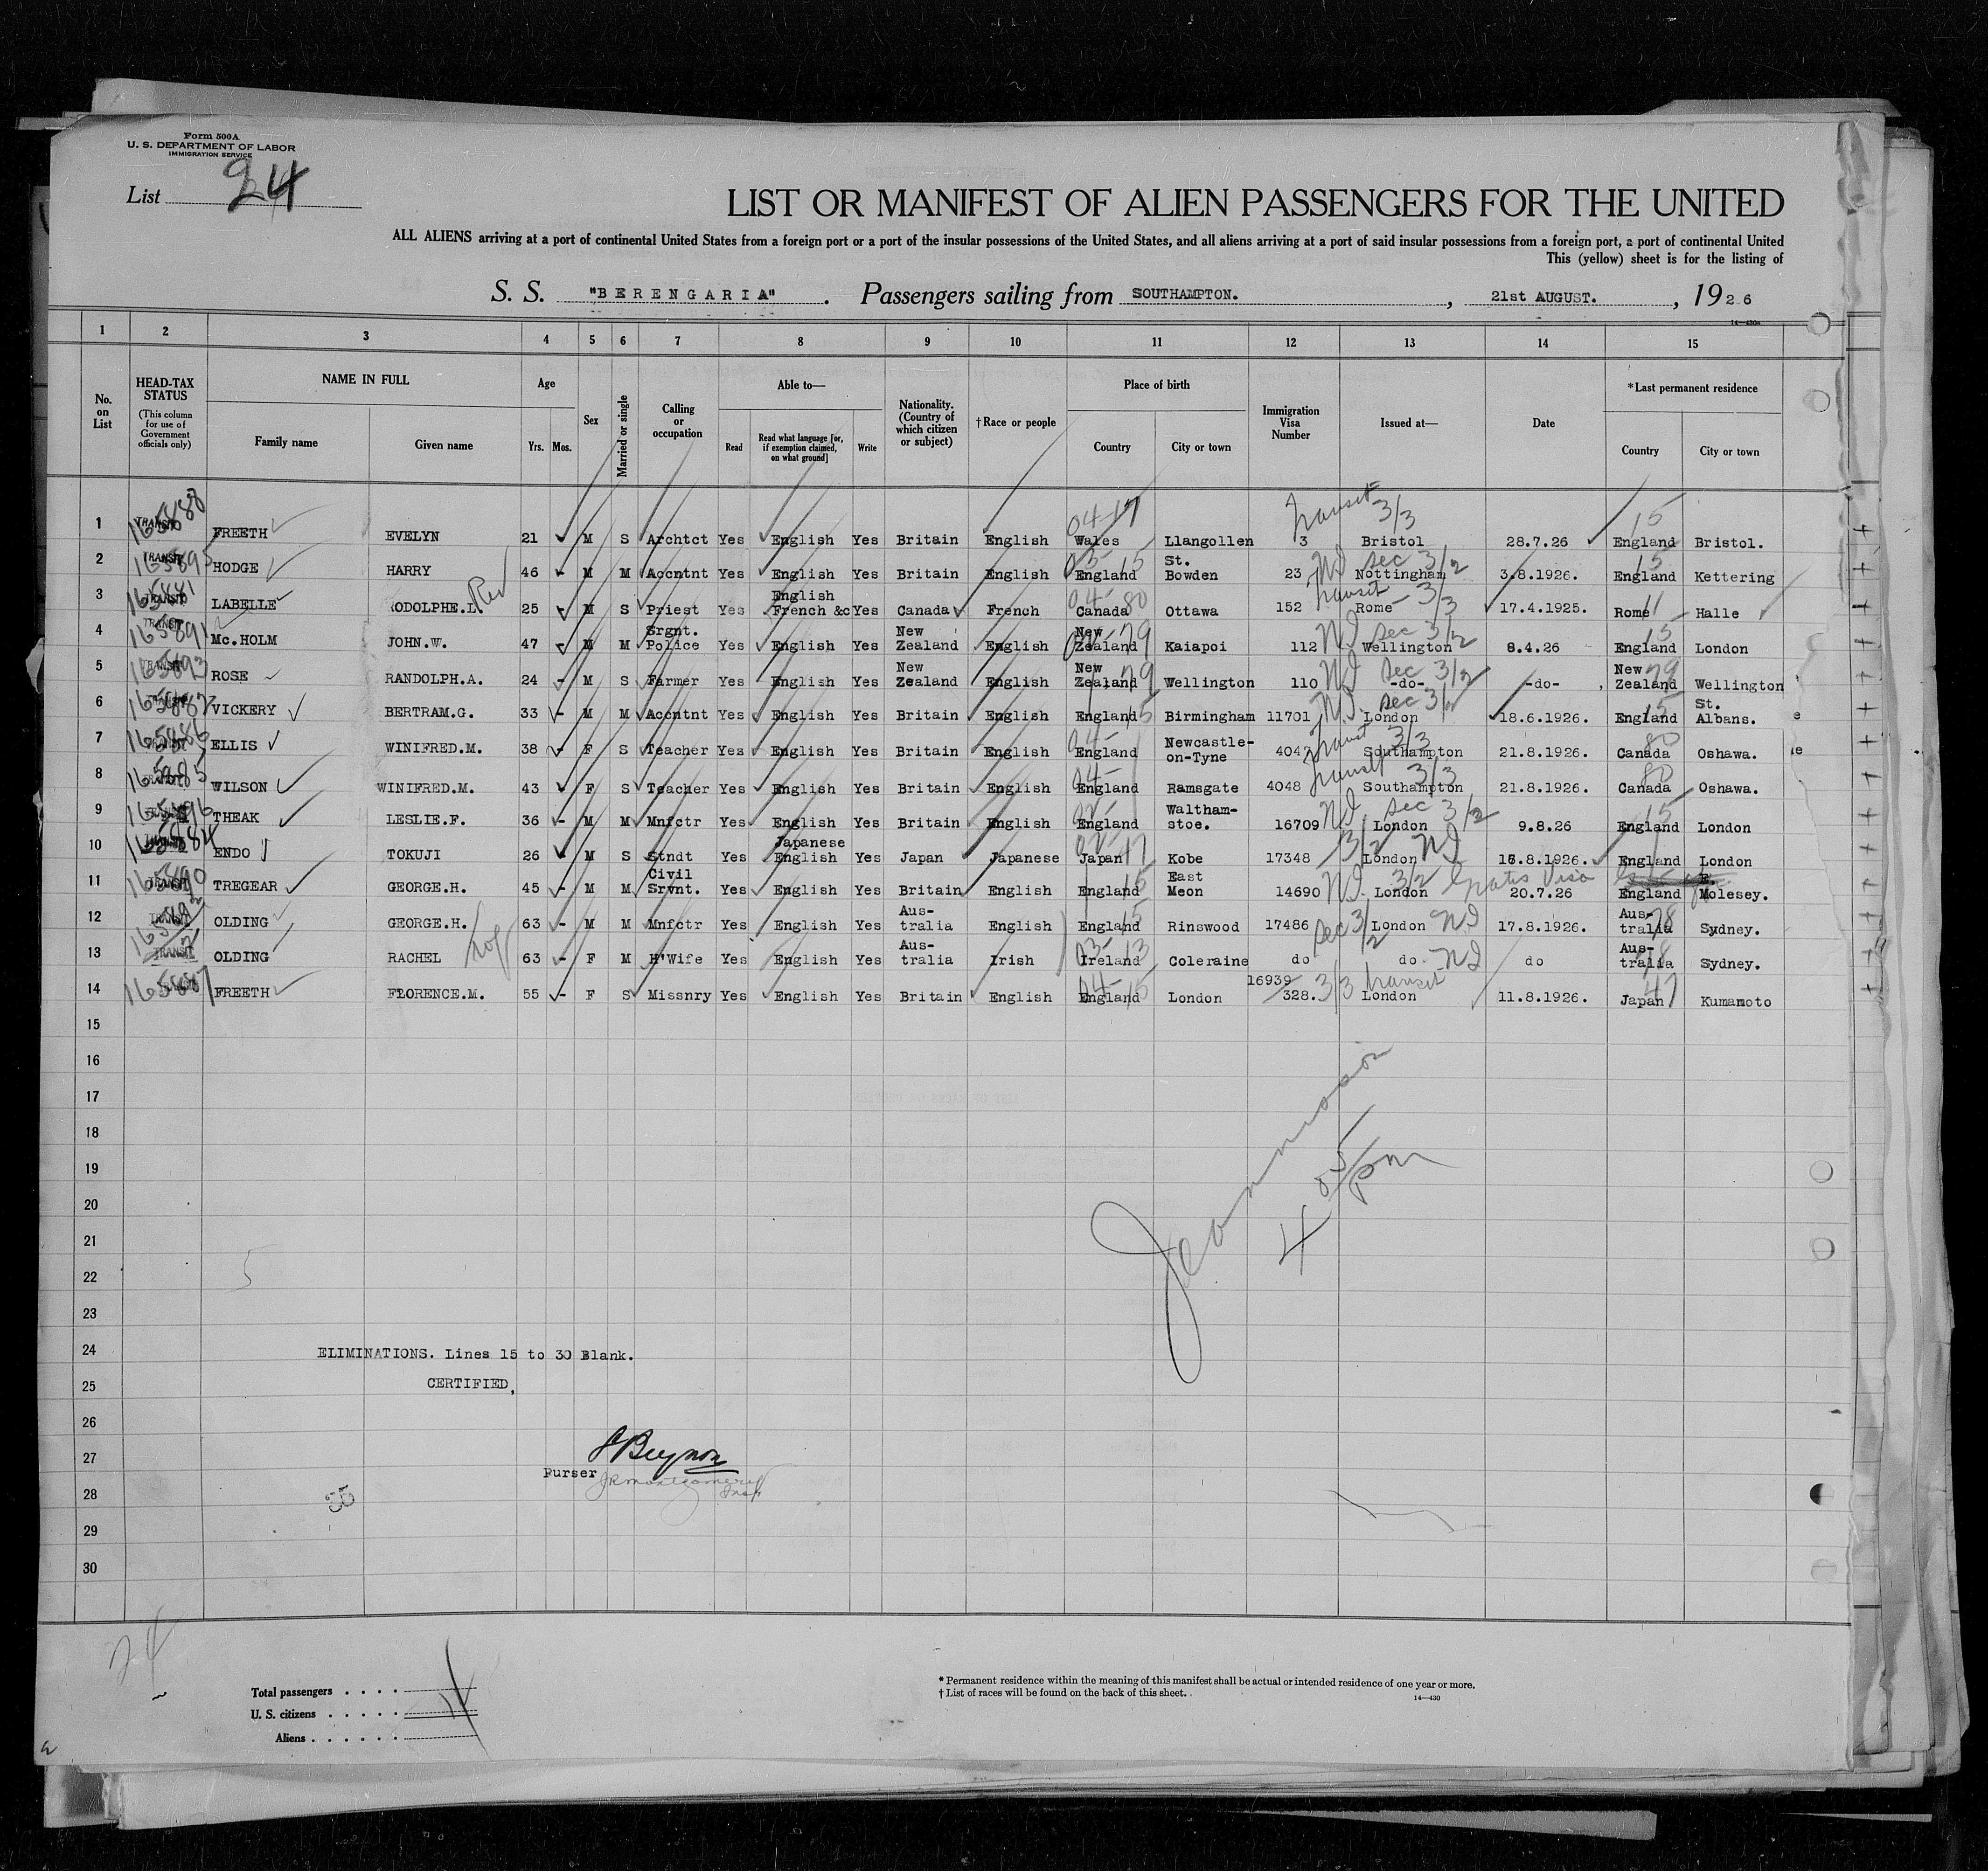 Form 500A
U. S. DEPARTMENT OF LABOR
IMMIGRATION SERVICE
List 24
LIST OR MANIFEST OF ALIEN PASSENGERS FOR THE UNITED
ALL ALIENS arriving at a port of continental United States from a foreign port or a port of the insular possessions of the United States, and all aliens arriving at a port of said insular possessions from a foreign port, a port of continental United
This (yellow) sheet is for the listing of
S. S. "BERENGARIA". Passengers sailing from SOUTHAMPTON., 21st AUGUST., 1926
14—430a
1 2 3 4 5 6 7 8 9 10 11 12 13 14 15
No. on List
HEAD-TAX STATUS
(This column for use of Government officials only)
NAME IN FULL
Family name
Given name
Age
Yrs. Mos.
Sex
Married or single
Calling or occupation
Able to—
Read
Read what language [or, if exemption claimed, on what ground]
Write
Nationality. (Country of which citizen or subject)
†Race or people
Place of birth
Country
City or town
Immigration Visa Number
Issued at—
Date
*Last permanent residence
Country
City or town
1 165888 TRANSIT FREETH EVELYN 21 M S Archtct Yes English Yes Britain English 04-17 Wales Llangollen Transit 3/3 3 Bristol 28.7.26 15 England Bristol.
2 165895 TRANSIT HODGE HARRY 46 M M Accntnt Yes English Yes Britain English 15 England St. Bowden 23 ND Sec 3/2 Nottingham 3.8.1926. 15 England Kettering
3 165881 TRANSIT LABELLE RODOLPHE.L. Rev 25 M S Priest Yes English French &c Yes Canada French 04-80 Canada Ottawa 152 Transit 3/3 Rome 17.4.1925. 11 Rome Halle
4 165891 TRANSIT Mc.HOLM JOHN.W. 47 M M Srgnt. Police Yes English Yes New Zealand English 79 New Zealand Kaiapoi 112 ND Sec 3/2 Wellington 8.4.26 15 England London
5 165893 TRANSIT ROSE RANDOLPH.A. 24 M S Farmer Yes English Yes New Zealand English 79 New Zealand Wellington 110 ND Sec 3/2 -do- -do- 79 New Zealand Wellington
6 165882 VICKERY BERTRAM.G. 33 M M Accntnt Yes English Yes Britain English 15 England Birmingham 11701 ND. Sec 3/2 London 18.6.1926. 15 England St. Albans.
7 165886 ELLIS WINIFRED.M. 38 F S Teacher Yes English Yes Britain English 04- England Newcastle-on-Tyne 4047 3/3 Southampton 21.8.1926. 80 Canada Oshawa.
8 165885 WILSON WINIFRED.M. 43 F S Teacher Yes English Yes Britain English 04- England Ramsgate 4048 Transit 3/3 Southampton 21.8.1926. 80 Canada Oshawa.
9 165896 THEAK LESLIE.F. 36 M M Mnfctr Yes English Yes Britain English 02- England Waltham-stoe. 16709 ND Sec 3/2 London 9.8.26 15 England London
10 165884 ENDO TOKUJI 26 M S Stndt Yes Japanese English Yes Japan Japanese Japan Kobe 17348 3/2 London ND 16.8.1926. England London
11 165890 TREGEAR GEORGE.H. 45 M M Civil Srvnt. Yes English Yes Britain English 15 England East Meon 14690 ND. 3/2 London Gratis Visa 20.7.26 England E. Molesey.
12 TRANSIT OLDING GEORGE.H. 63 M M Mnfctr Yes English Yes Aus-tralia English 15 England Rinswood 17486 Sec 3/2 London ND 17.8.1926. 78 Aus-tralia Sydney.
13 TRANSIT OLDING RACHEL 63 F M H'Wife Yes English Yes Aus-tralia Irish 03-13 Ireland Coleraine do do. ND do 78 Aus-tralia Sydney.
14 165887 FREETH FLORENCE.M. 55 F S Missnry Yes English Yes Britain English 04-15 England London 16939 328. 3/3 Transit London 11.8.1926. 47 Japan Kumamoto
15
16
17
18
19
20
21
22
23
24
25
26
27
28
29
30
4 05/pm
5
ELIMINATIONS. Lines 15 to 30 Blank.
CERTIFIED,
Purser
35
24
Total passengers
U. S. citizens
Aliens
14
* Permanent residence within the meaning of this manifest shall be actual or intended residence of one year or more.
† List of races will be found on the back of this sheet.
14—430